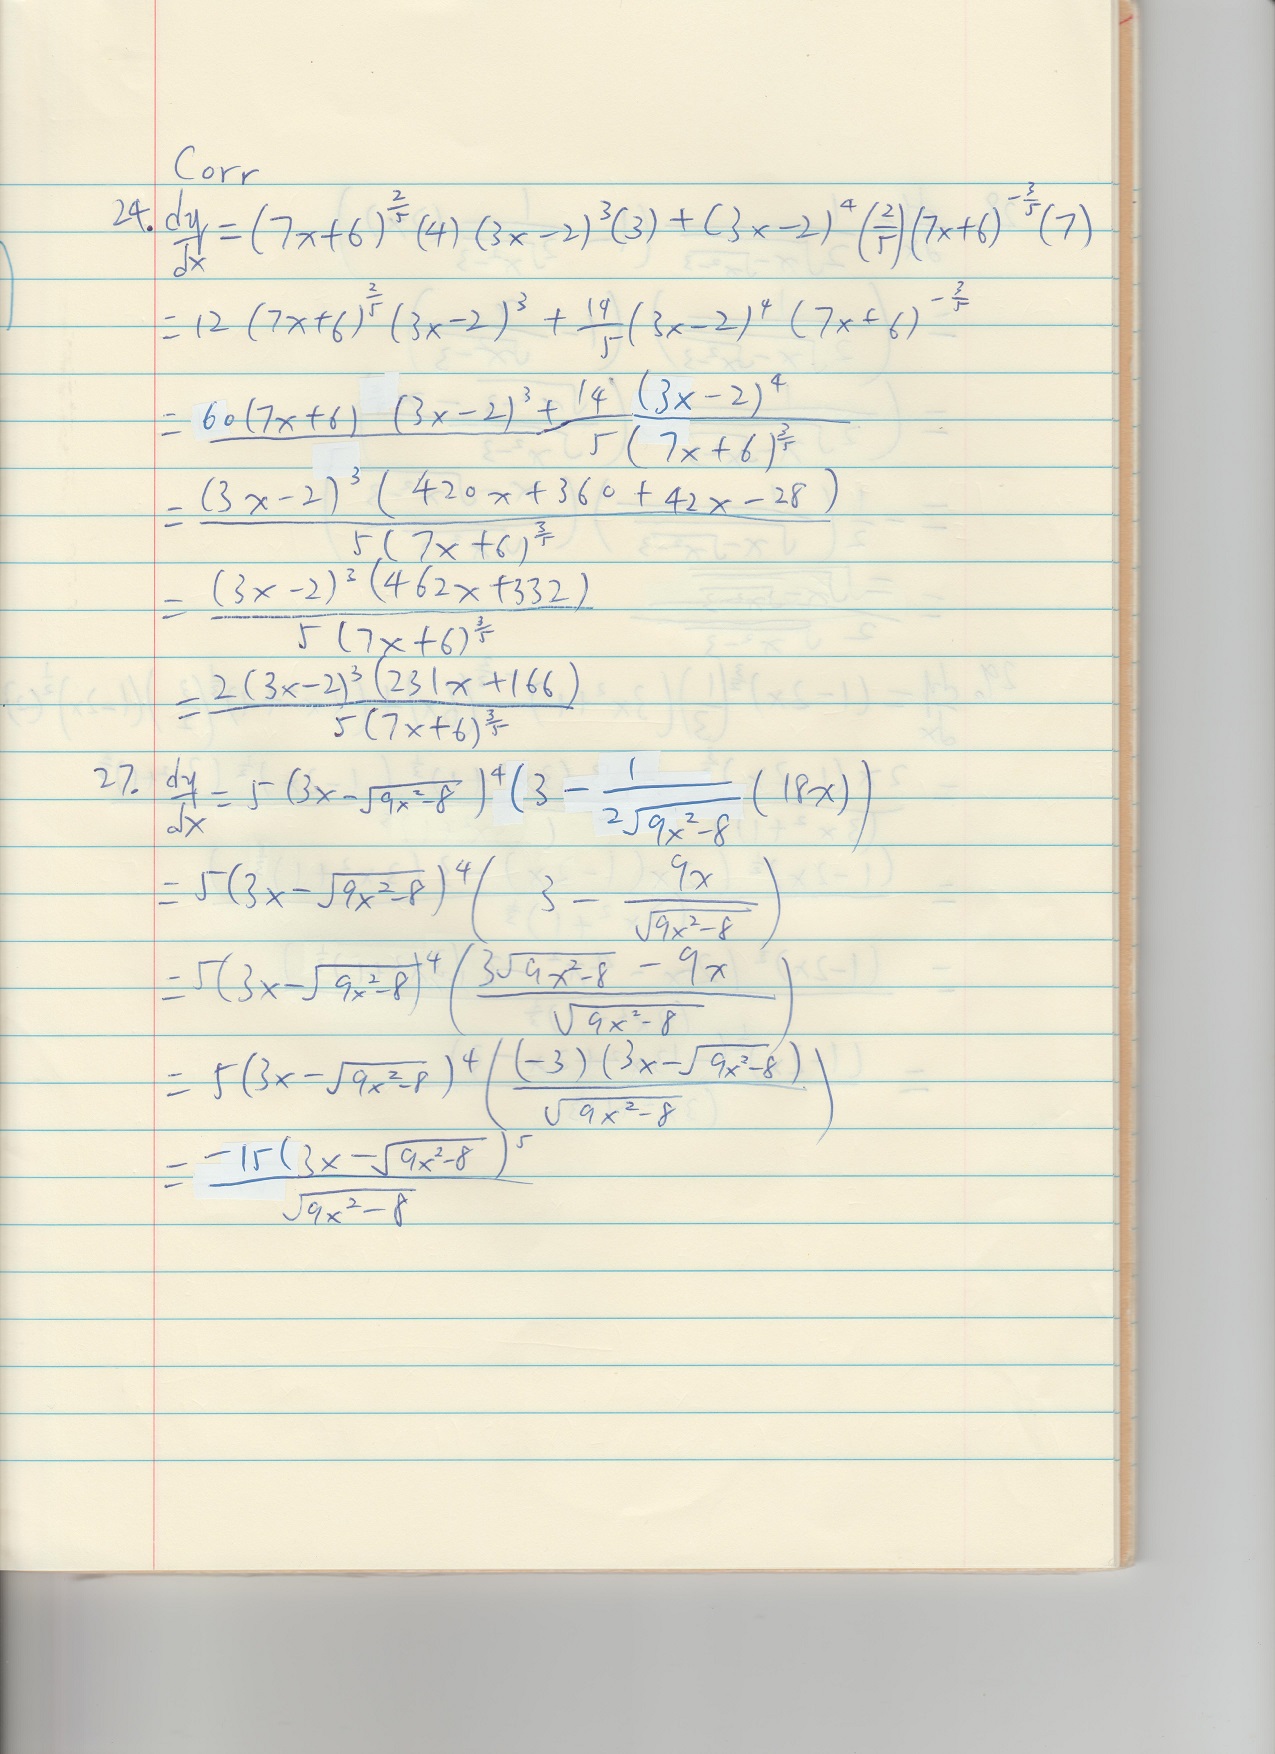 Corr
24. dy/dx = (7x+6)^(2/5) (4) (3x-2)^3 (3) + (3x-2)^4 (2/5) (7x+6)^(-3/5) (7)
= 12 (7x+6)^(2/5) (3x-2)^3 + 14/5 (3x-2)^4 (7x+6)^(-3/5)
= (60(7x+6) (3x-2)^3 + 14 (3x-2)^4) / (5(7x+6)^(3/5))
= ((3x-2)^3 (420x+360+42x-28)) / (5(7x+6)^(3/5))
= ((3x-2)^3 (462x+332)) / (5(7x+6)^(3/5))
= (2(3x-2)^3 (231x+166)) / (5(7x+6)^(3/5))
27. dy/dx = 5(3x-√(9x²-8))^4 (3 - 1/(2√(9x²-8)) (18x))
= 5(3x-√(9x²-8))^4 (3 - 9x/√(9x²-8))
= 5(3x-√(9x²-8))^4 ((3√(9x²-8) - 9x)/√(9x²-8))
= 5(3x-√(9x²-8))^4 ((-3)(3x-√(9x²-8))/√(9x²-8))
= -15(3x-√(9x²-8))^5 / √(9x²-8)